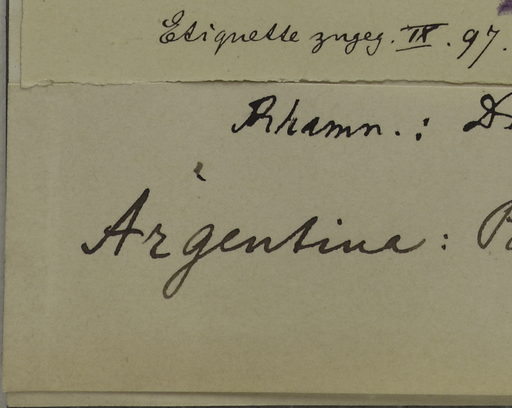 Etiquette zugeg. IX. 97.
Rhamn. :
Argentina :